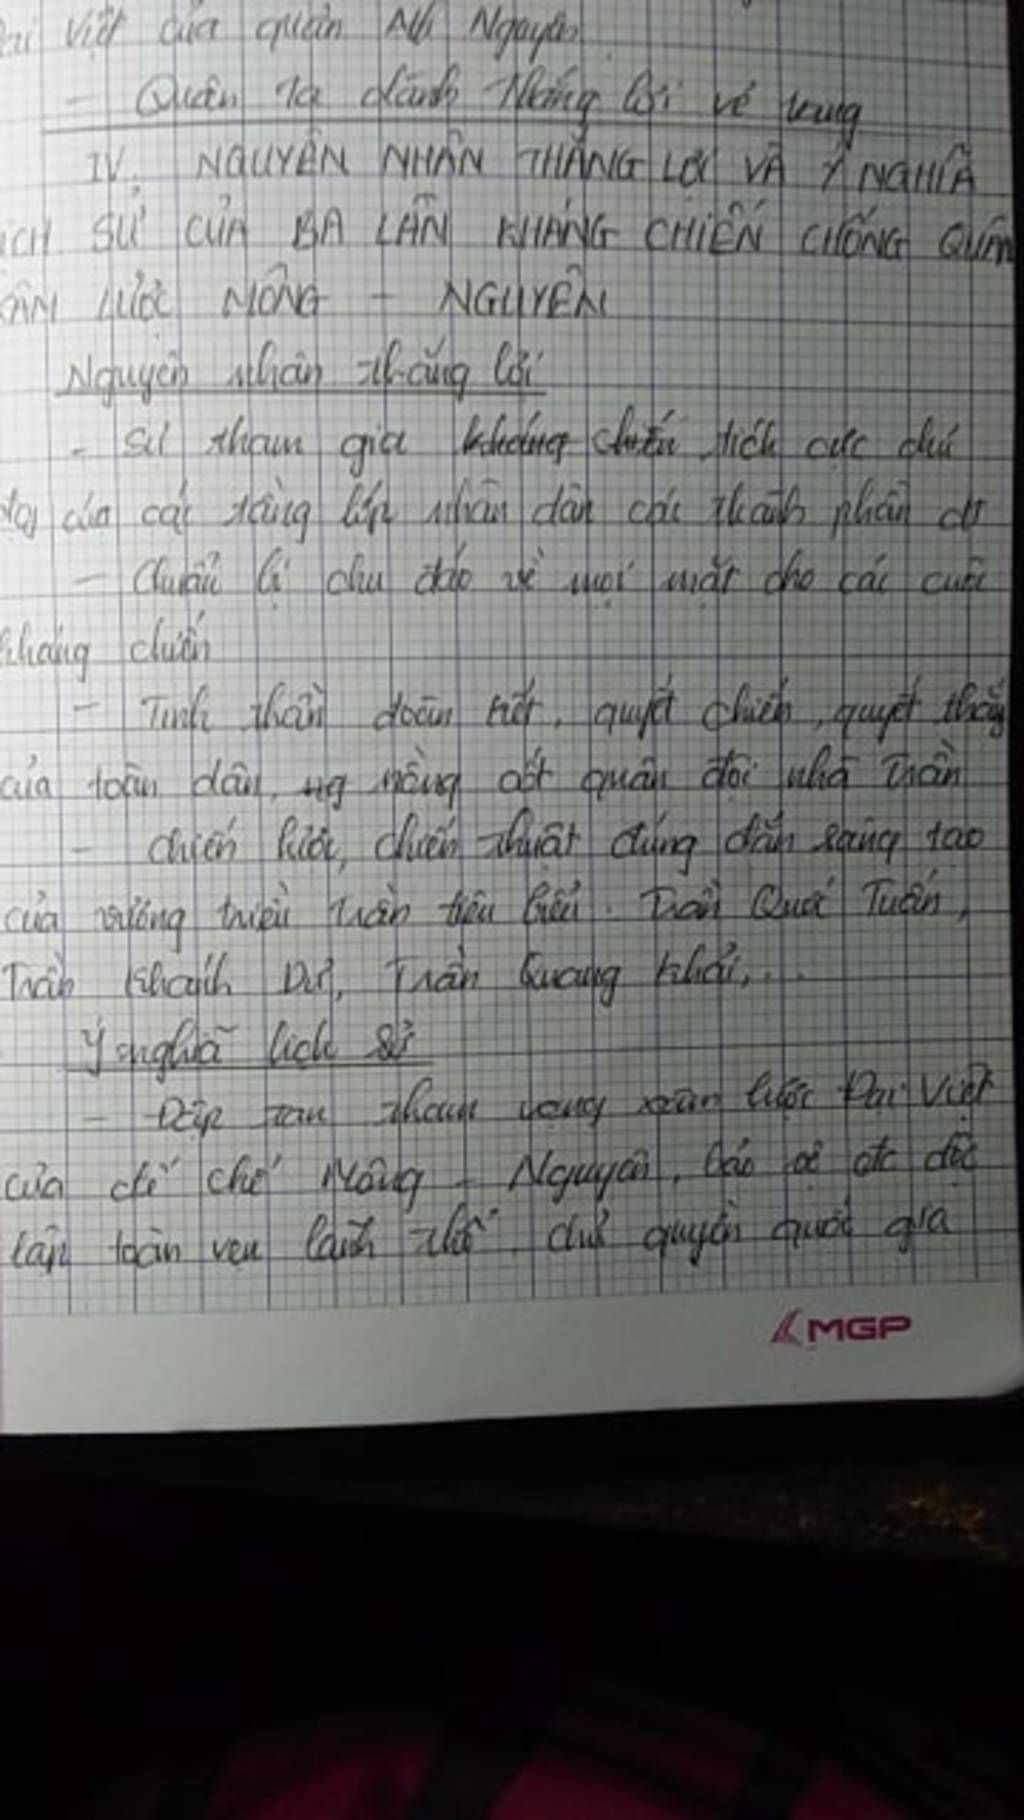 Việt của quân Ng Nguyên
- Quân ta dành thắng lợi vẻ vang
IV. NGUYÊN NHÂN THẮNG LỢI VÀ Ý NGHĨA
ỊCH SỬ CỦA BA LẦN KHÁNG CHIẾN CHỐNG QUÂN
ÂM LƯỢC MÔNG - NGUYÊN
Nguyên nhân thắng lợi
- Sự tham gia kháng chiến tích cực chủ
của các tầng lớp nhân dân các thành phần
- Chuẩn bị chu đáo về mọi mặt cho các cuộc
kháng chiến
- Tinh thần đoàn kết, quyết chiến, quyết thắng
của toàn dân, ng nòng cốt quân đội nhà Trần
- chiến lược, chiến thuật đúng đắn sáng tạo
của vương triều Trần tiêu biểu: Trần Quốc Tuấn,
Trần Khánh Dư, Trần Quang Khải,...
Ý nghĩa lịch sử
- Đập tan tham vọng xâm lược Đại Việt
của đế chế Mông - Nguyên, bảo vệ độc
lập toàn vẹn lãnh thổ, chủ quyền quốc gia
MGP